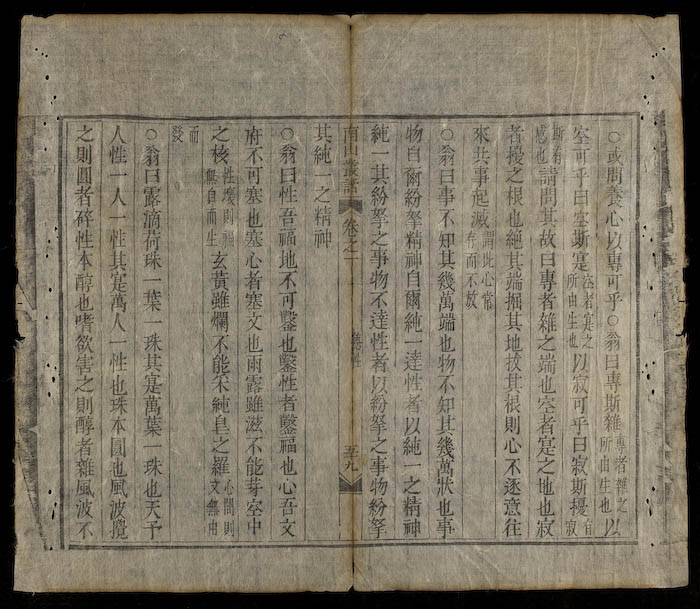 ○或問養心以專可乎○翁曰專斯雜專者雜之所由生也以
空可乎曰空斯寔空者寔之所由生也以寂可乎曰寂斯擾有寂
斯有感也請問其故曰專者雜之端也空者寔之地也寂
者擾之根也絶其端掘其地拔其根則心不逐意往
來共事起滅謂此心常存而不放
○翁曰事不知其幾萬端也物不知其幾萬狀也事
物自爾紛拏精神自爾純一達性者以純一之精神
純一其紛拏之事物不達性者以紛拏之事物紛拏
南山叢話
卷之一
五九
其純一之精神
○翁曰性吾福地不可鑿也鑿性者鑿福也心吾文
府不可塞也塞心者塞文也雨露雖滋不能芽空中
之核性則福無自而生玄黃雖爛不能采純皇之羅心閉則文無由
而發
○翁曰露滴荷珠一葉一珠其寔萬葉一珠也天予
人性一人一性其寔萬人一性也珠本圓也風波攪
之則圓者碎性本醇也嗜欲害之則醇者雜風波不